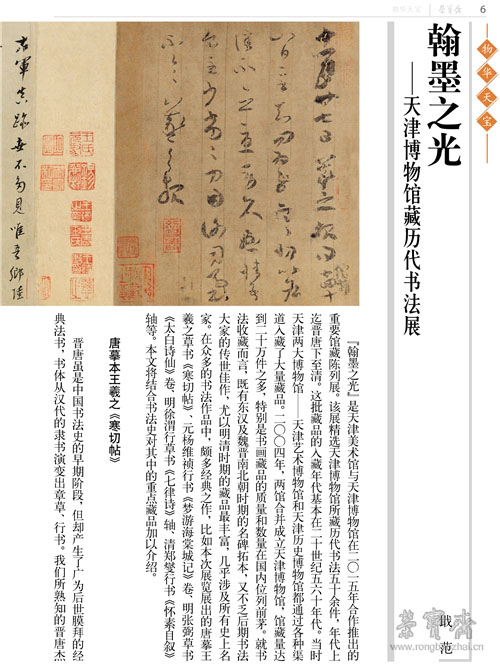 物华天宝
荣宝斋
6
物华天宝
翰墨之光
——天津博物馆藏历代书法展
范
『翰墨之光』是天津美术馆与天津博物馆在二〇一五年合作推出的
重要馆藏陈列展。该展精选天津博物馆所藏历代书法五十余件，年代上
迄晋唐下至清。这批藏品的入藏年代基本在二十世纪五六十年代。当时
天津两大博物馆——天津艺术博物馆和天津历史博物馆都通过各种渠
道入藏了大量藏品。二〇〇四年，两馆合并成立天津博物馆，馆藏量达
到二十万件之多，特别是书画藏品的质量和数量在国内位列前茅。就书
法收藏而言，既有东汉及魏晋南北朝时期的名碑拓本，又不乏后期书法
大家的传世佳作，尤以明清时期的藏品最丰富，几乎涉及所有史上名
家。在众多的书法作品中，颇多经典之作，比如本次展览展出的唐摹王
羲之草书《寒切帖》、元杨维祯行书《梦游海棠城记》卷、明张弼草书
《太白诗仙》卷、明徐渭行草书《七律诗》轴、清郑燮行书《怀素自叙》
轴等。本文将结合书法史对其中的重点藏品加以介绍。
唐摹本王羲之《寒切帖》
晋唐虽是中国书法史的早期阶段，但却产生了广为后世膜拜的经
典法书，书体从汉代的隶书演变出章草、行书。我们所熟知的晋唐杰
右軍真跡世不多見唯吾鄉陸
榮寶齋
www.rongbaozhai.cn